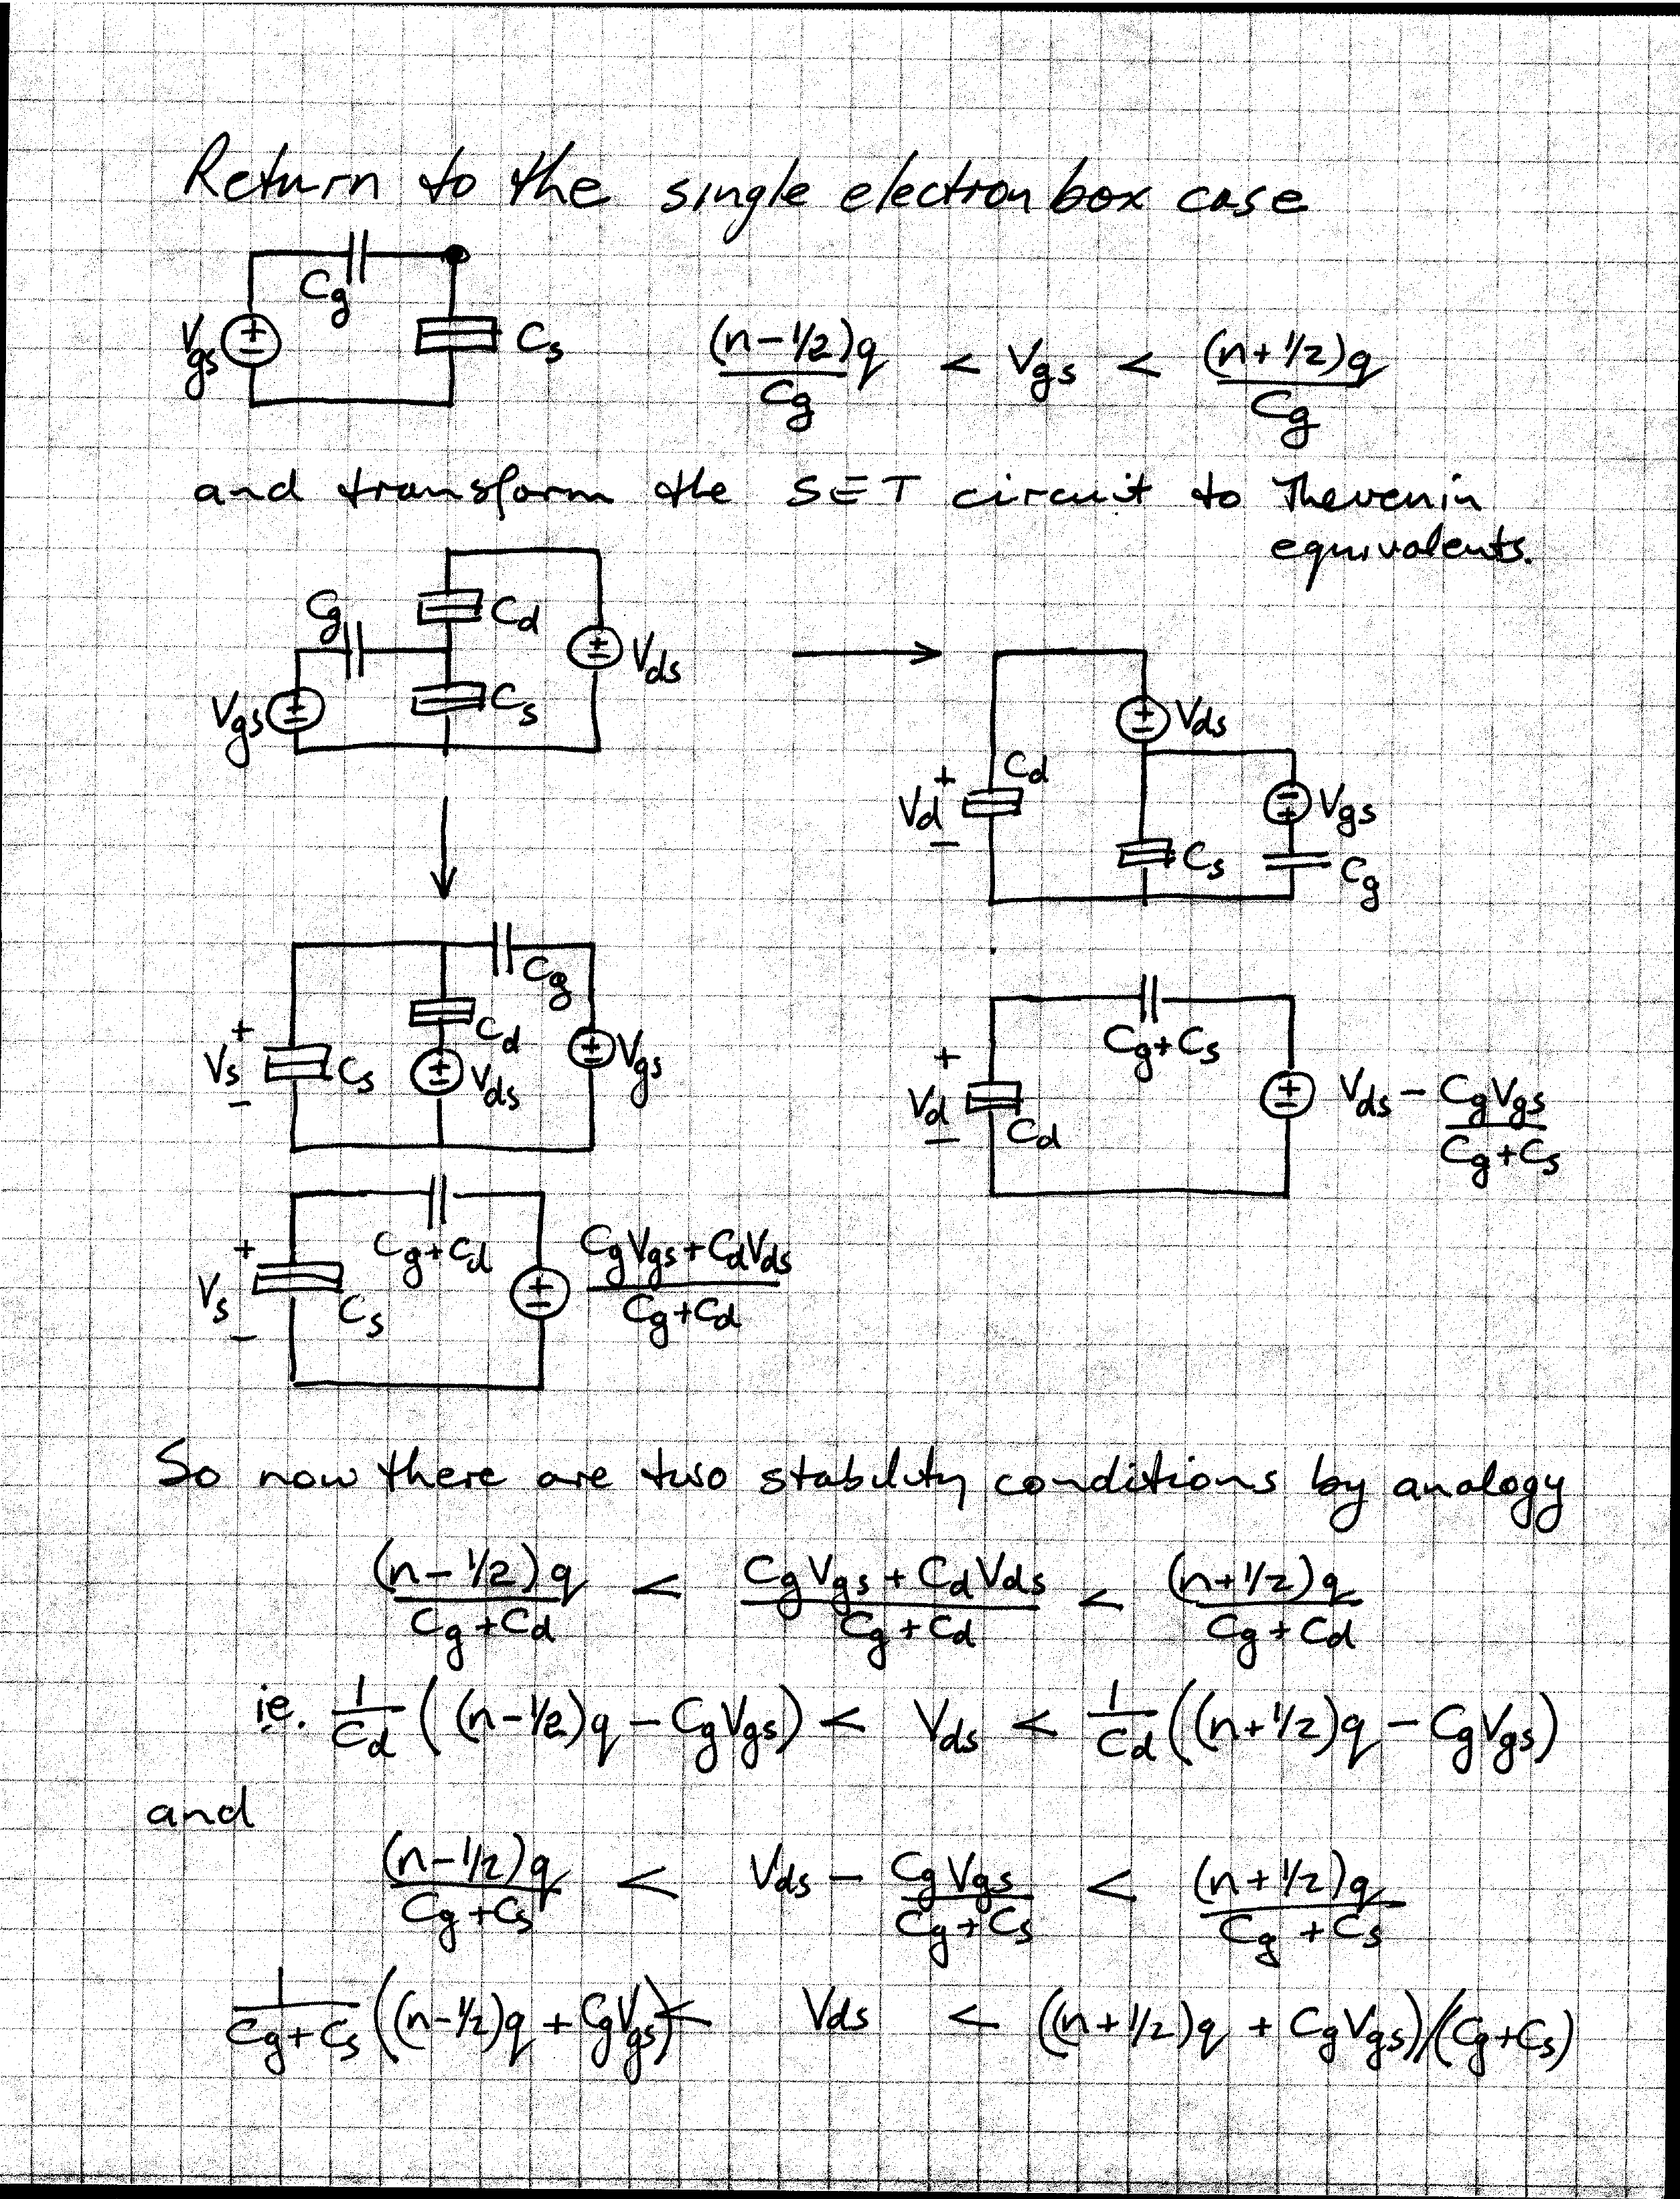 Return to the single electron box case
Cg
Vgs
Cs
(n-1/2)q / Cg < Vgs < (n+1/2)q / Cg
and transform the SET circuit to Thevenin
equivalents.
Cg
Cd
Vds
Vgs
Cs
Vds
Cd
+
Vd
-
Vgs
Cs
Cg
Cg
+
Vs
-
Cs
Cd
Vds
Vgs
Cg+Cs
+
Vd
-
Cd
Vds - CgVgs / Cg+Cs
Cg+Cd
+
Vs
-
Cs
CgVgs+CdVds / Cg+Cd
So now there are two stability conditions by analogy
(n-1/2)q / Cg+Cd < CgVgs + CdVds / Cg+Cd < (n+1/2)q / Cg+Cd
ie. 1/Cd ((n-1/2)q - CgVgs) < Vds < 1/Cd ((n+1/2)q - CgVgs)
and
(n-1/2)q / Cg+Cs < Vds - CgVgs / Cg+Cs < (n+1/2)q / Cg+Cs
1/Cg+Cs ((n-1/2)q + CgVgs) < Vds < ((n+1/2)q + CgVgs)/(Cg+Cs)